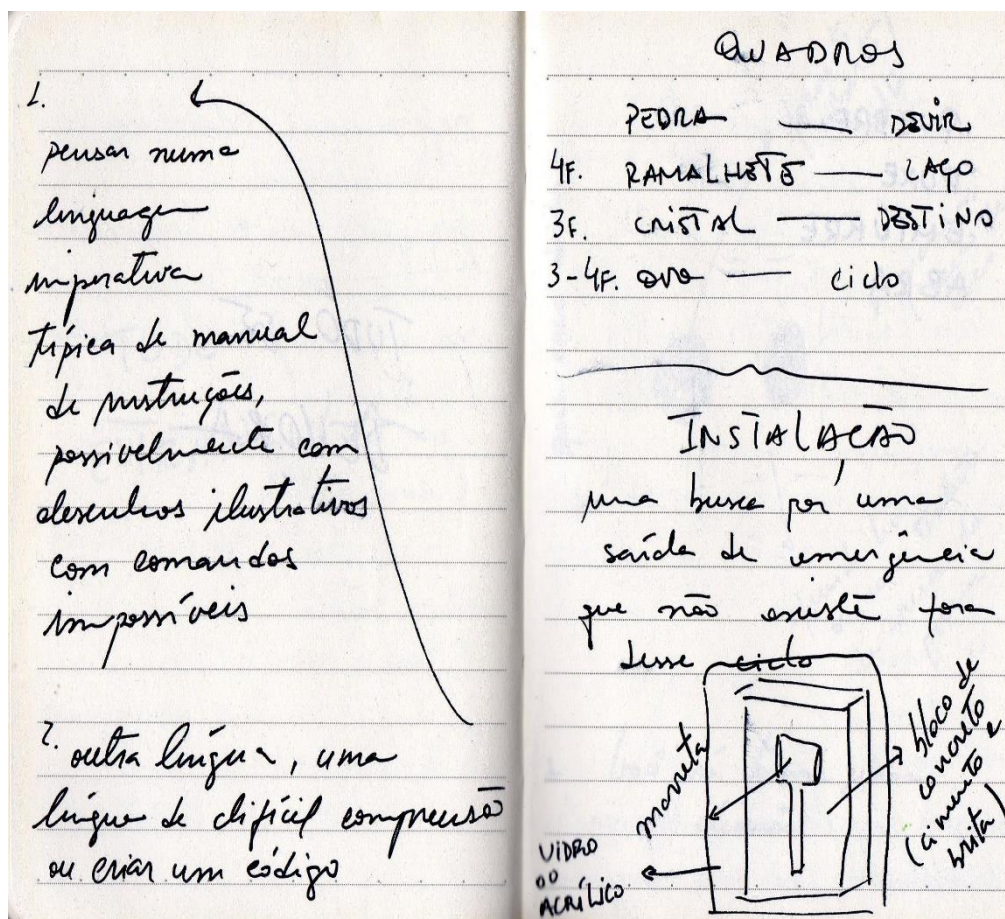 1.
pensar numa
linguagem
imperativa
típica de manual
de instruções,
possivelmente com
desenhos ilustrativos
com comandos
impossíveis
2. outra língua, uma
língua de difícil compreensão
ou criar um código
QUADROS
PEDRA — DEVIR
4F. RAMALHETE — LAÇO
3F. CRISTAL — DESTINO
3-4F. OVO — ciclo
INSTALAÇÃO
uma busca por uma
saída de emergência
que não existe fora
desse ciclo
marreta
bloco de
concreto
(cimento e
brita)
VIDRO
OU
ACRÍLICO